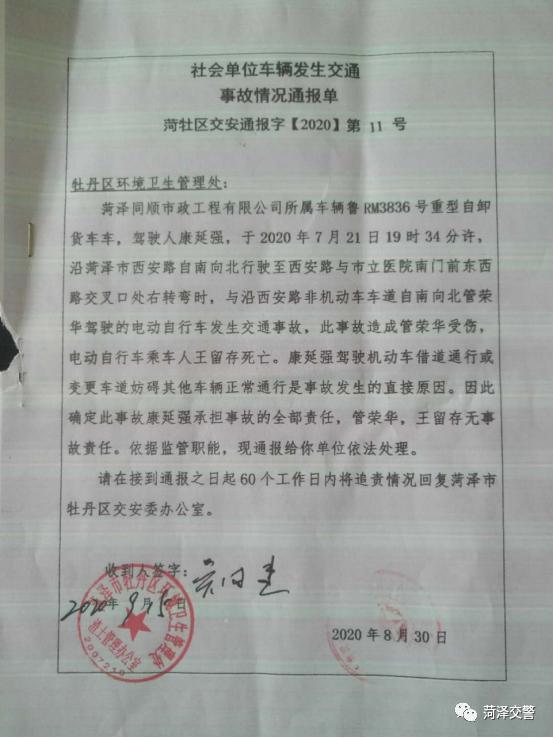 社会单位车辆发生交通
事故情况通报单
菏牡区交安通报字【2020】第 11 号
牡丹区环境卫生管理处：
菏泽同顺市政工程有限公司所属车辆鲁 RM3836 号重型自卸
货车车，驾驶人康延强，于 2020 年 7 月 21 日 19 时 34 分许，
沿菏泽市西安路自南向北行驶至西安路与市立医院南门前东西
路交叉口处右转弯时，与沿西安路非机动车车道自南向北管荣
华驾驶的电动自行车发生交通事故，此事故造成管荣华受伤，
电动自行车乘车人王留存死亡。康延强驾驶机动车借道通行或
变更车道妨碍其他车辆正常通行是事故发生的直接原因。因此
确定此事故康延强承担事故的全部责任，管荣华，王留存无事
故责任。依据监管职能，现通报给你单位依法处理。
请在接到通报之日起 60 个工作日内将追责情况回复菏泽市
牡丹区交安委办公室。
收到人签字：
2020 年 9 月 15 日
菏泽市牡丹区环境卫生管理处
渣土管理办公室
2020 年 8 月 30 日
菏泽交警